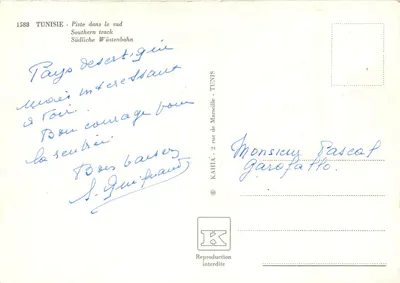 1588 TUNISIE - Piste dans le sud
Southern track
Südliche Wüstenbahn
Pays desertique
mais interessant
a voir.
Bon courage pour
la rentrée.
Bons baisers
© KAHIA - 2 rue de Marseille - TUNIS
Monsieur Pascal
Garofallo.
K
Reproduction
interdite